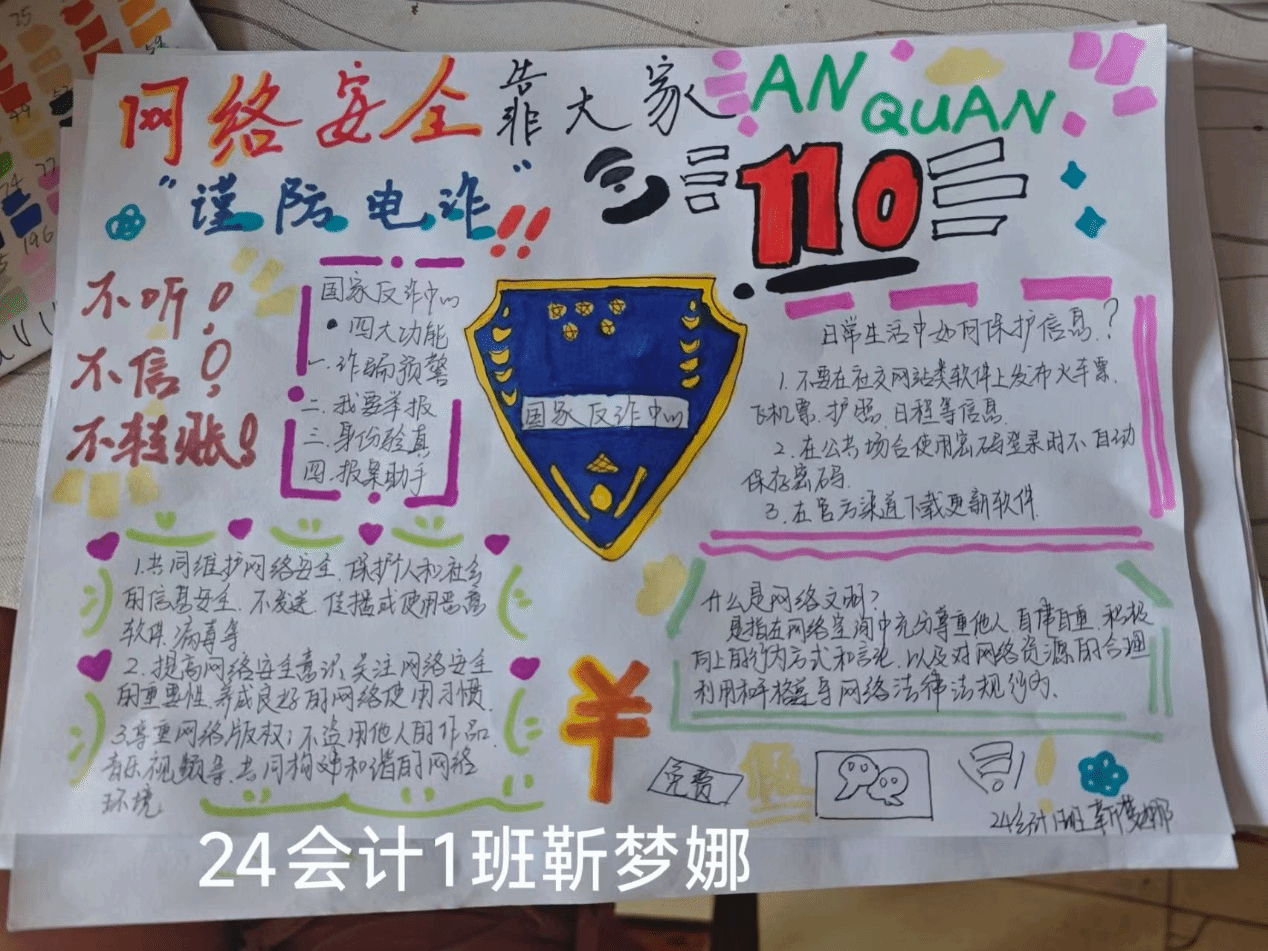 网络安全靠大家 AN QUAN
"谨防电诈"!!
110
不听!
不信!
不转账!
国家反诈中心
·四大功能
一.诈骗预警
二.我要举报
三.身份验真
四.报案助手
国家反诈中心
日常生活中如何保护信息?
1.不要在社交网站类软件上发布火车票.
飞机票.护照.日程等信息.
2.在公共场合使用密码登录时不自动
保存密码.
3.在官方渠道下载更新软件.
1.共同维护网络安全.保护个人和社会
的信息安全.不发送.传播或使用恶意
软件.病毒等
2.提高网络安全意识.关注网络安全
的重要性.养成良好的网络使用习惯.
3.尊重网络版权;不盗用他人的作品.
音乐视频等.共同构建和谐的网络
环境
什么是网络文明?
是指在网络空间中充分尊重他人.自律自重.积极
向上的行为方式和言论.以及对网络资源的合理
利用和严格遵守网络法律法规行为.
¥
免费
假
24会计1班靳梦娜
24会计1班靳梦娜
25
59
44
22
24
196